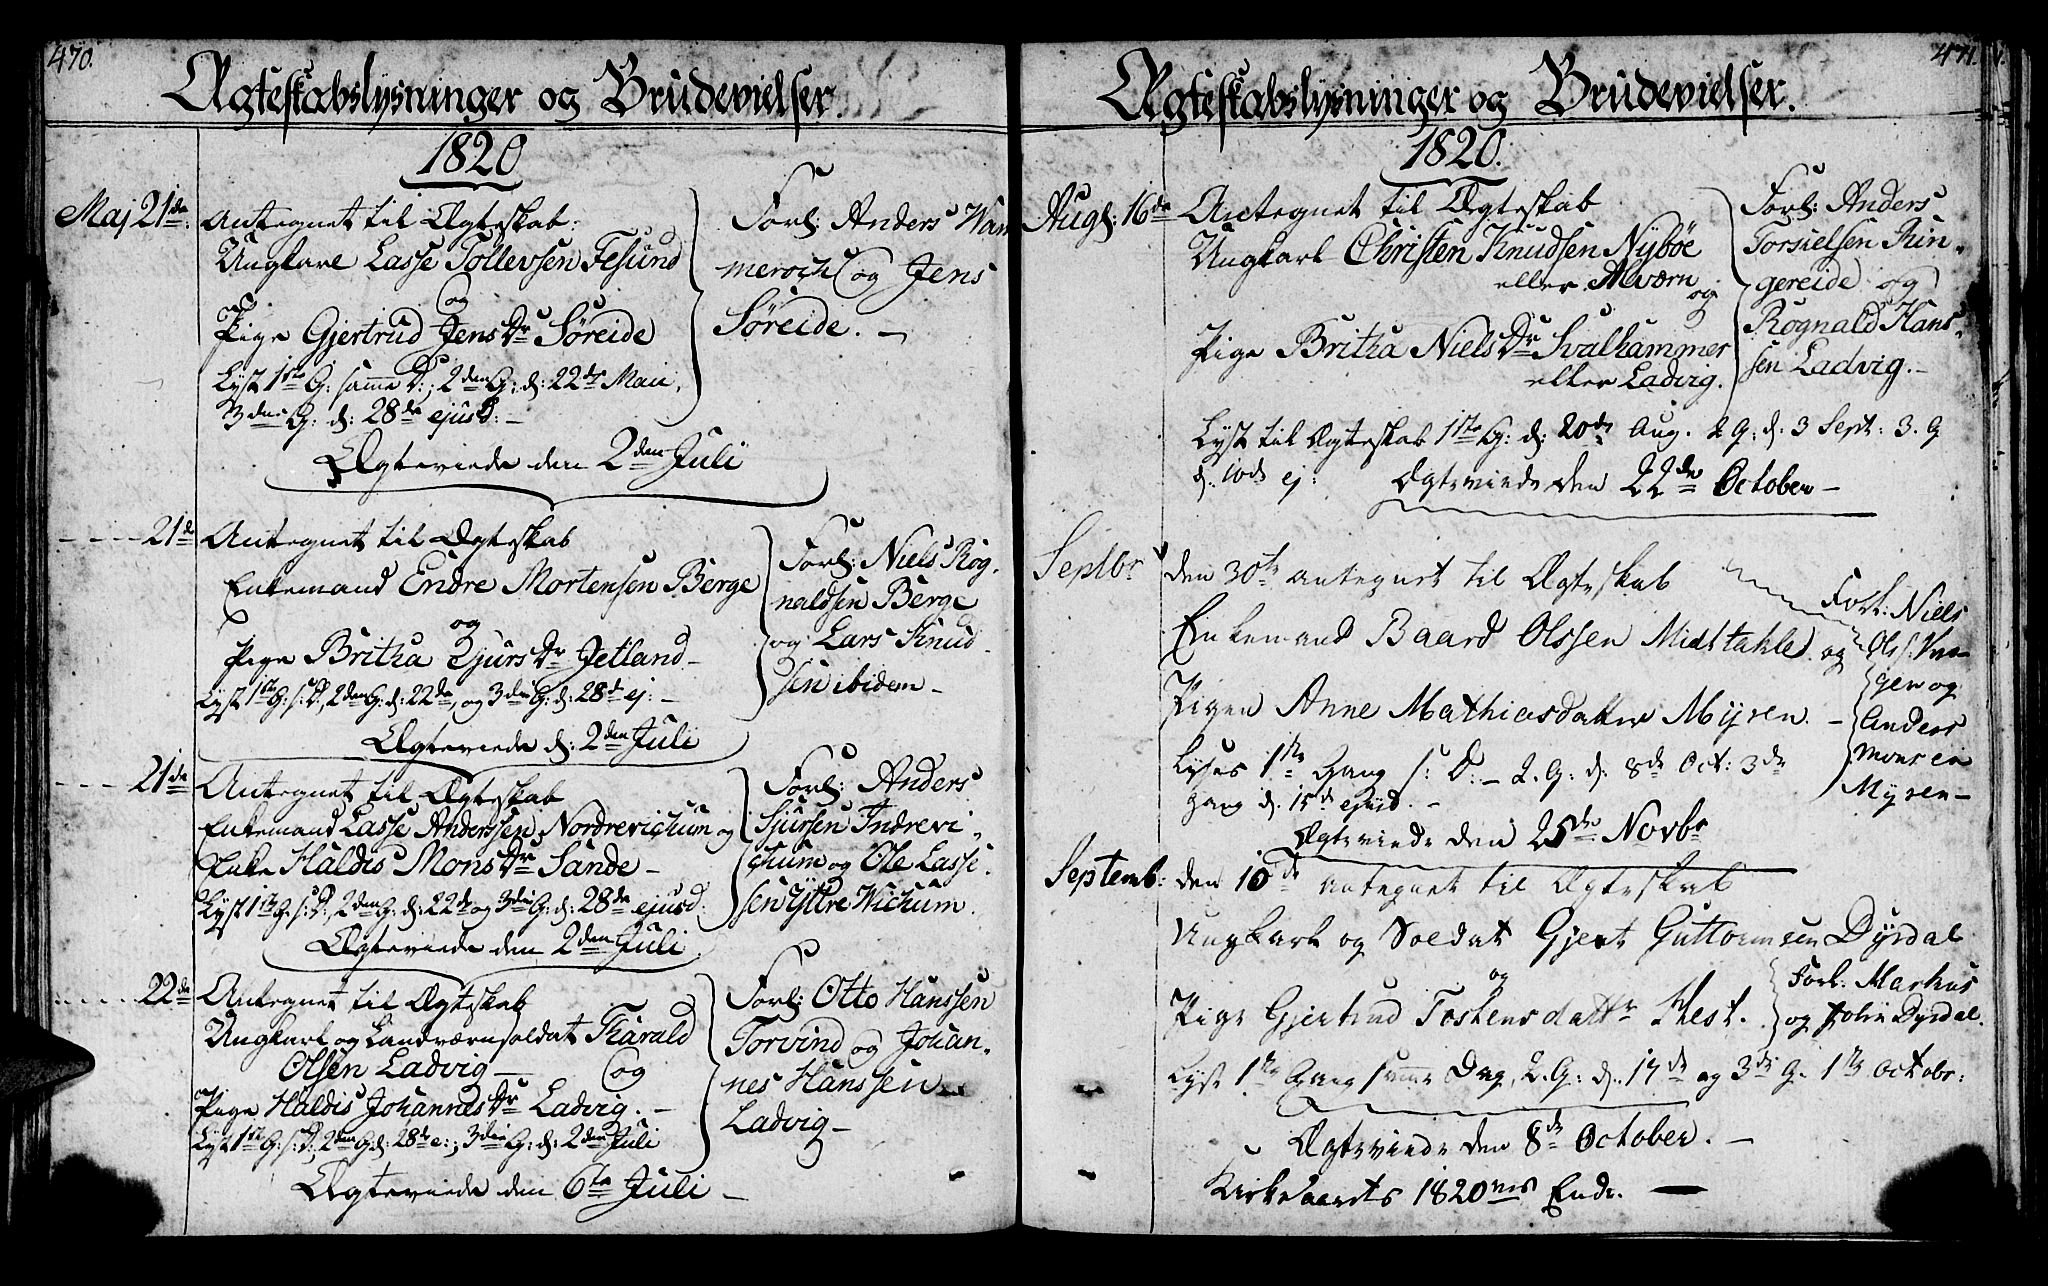 470.
Ægteskabslysninger og Brudevielser.
1820
Maj 21de: Antegnet til Ægteskab:
Ungkarl Lasse Tollevsen Tesund
og
Pige Gjertrud Jens Dr Søreide
Lyst 1ste G: samme D:, 2den G: d: 22de Maii,
3die G: d: 28de ejusd: –
Forl: Anders Wam
merch og Jens
Søreide. –
Ægteviede den 2den Juli
21de Antegnet til Ægteskab
Enkemand Endre Mortensen Berge
og
Pige Britha Sjurs Dr Jetland –
Lyst 1ste G: s: D:, 2den G: d: 22de, og 3die G: d: 28d ej: –
Forl: Niels Rog-
naldsen Berge
og Lars Knud-
sen ibidem –
Ægteviede d: 2den Juli
21de Antegnet til Ægteskab
Enkemand Lasse Anderssen Nordrevichum og
Enke Haldis Mons Dr Sande –
Lyst 1ste G. s: D:, 2den G: d: 22de og 3die G: d: 28de ejusd:
Forl: Anders
Sjursen Indrevi-
chum og Ole Lasse-
sen Ÿttre Wichum.
Ægteviede den 2den Juli
22de Antegnet til Ægteskab
Ungkarl og Landværnsoldat Harald
Olsen Ladvig – og
Pige Haldis Johannes Dr Ladvig. –
Lyst 1ste G: s: D:, 2den G: d: 28de e:; 3die G: d: 2den Juli
Forl: Otto Hanssen
Torvind og Johan-
nes Hanssen
Ladvig –
Ægteviede den 6te Juli –
471.
Ægteskabslysninger og Brudevielser.
1820.
Augs: 16de Antegnet til Ægteskab
Ungkarl Christen Knudsen Nybøe
eller Alværn
og
Pige Britha Niels Dr Svalhammer
eller Ladvig.
Forl: Anders
Torsielsen Rin-
gereide og
Rognald Hans-
sen Ladvig. –
Lyst til Ægteskab 1ste G: d: 20de Aug. 2 G: d. 3 Sept: 3. G
d. 10de ej: Ægteviede den 22de October –
Septbr den 30te antegnet til Ægteskab
Enkemand Baard Olssen Midttahle og
Pigen Anne Mathiasdatter Myren. –
Lyses 1ste Gang s: D: – 2. G: d: 8de Oct: 3de
Gang d. 15de ejusd. –
Forl: Niels
Ols:
gen og
Anders
Monsen
Myren –
Ægteviede den 25de Novbr
Septemb: den 10de antegnet til Ægteskab
Ungkarl og Soldat Gjert Guttormsen Dyrdal
og
Pige Gjertrud Toskensdattr Hest.
Forl: Markus
og John Dyrdal.
Lyst 1ste Gang samme Dag, 2. G: d. 17de og 3de G. 1ste Octobr:
Ægteviede den 8de October. –
Kirkeaarets 1820nes Ende. –